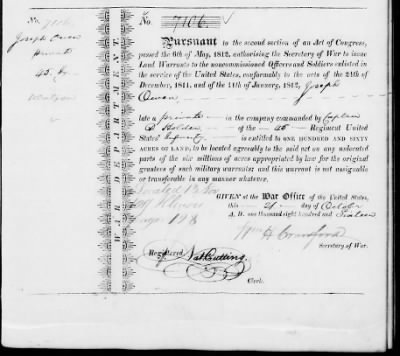 No. 7106
Joseph Owen
private
45
WAR DEPARTMENT
No. 7106
PURSUANT to the second section of an Act of Congress,
passed the 6th of May, 1812, authorising the Secretary of War to issue
Land Warrants to the noncommissioned Officers and Soldiers enlisted in
the service of the United States, conformably to the acts of the 24th of
December, 1811, and of the 11th of January, 1812, Joseph
Owen
late a private in the company commanded by Captain
Holden of the 45 Regiment United
States' Infantry is entitled to ONE HUNDRED AND SIXTY
ACRES OF LAND, to be located agreeably to the said act on any unlocated
parts of the six millions of acres appropriated by law for the original
grantees of such military warrants; and this warrant is not assignable
or transferable in any manner whatever.
Located
Illinois
page 128
GIVEN at the War Office of the United States,
this 21 day of October
A. D. one thousand eight hundred and Sixteen
Wm H Crawford
Secretary of War.
Registered Nat Cutting
Clerk.